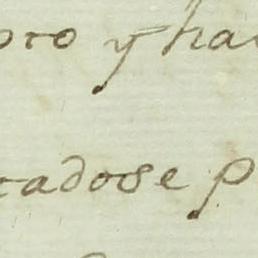 oro y ha
cadose p